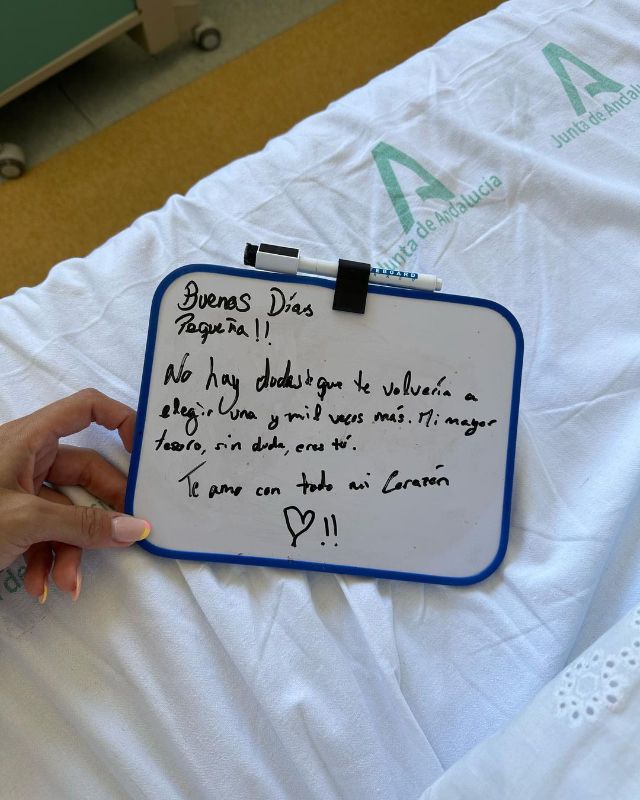 Junta de Andalucía
Junta de Andalucía
BOARD
Buenas Días
Pequeña!!
No hay dudas que te volvería a
elegir una y mil veces más. Mi mayor
tesoro, sin duda, eres tú.
Te amo con todo mi Corazón
!!